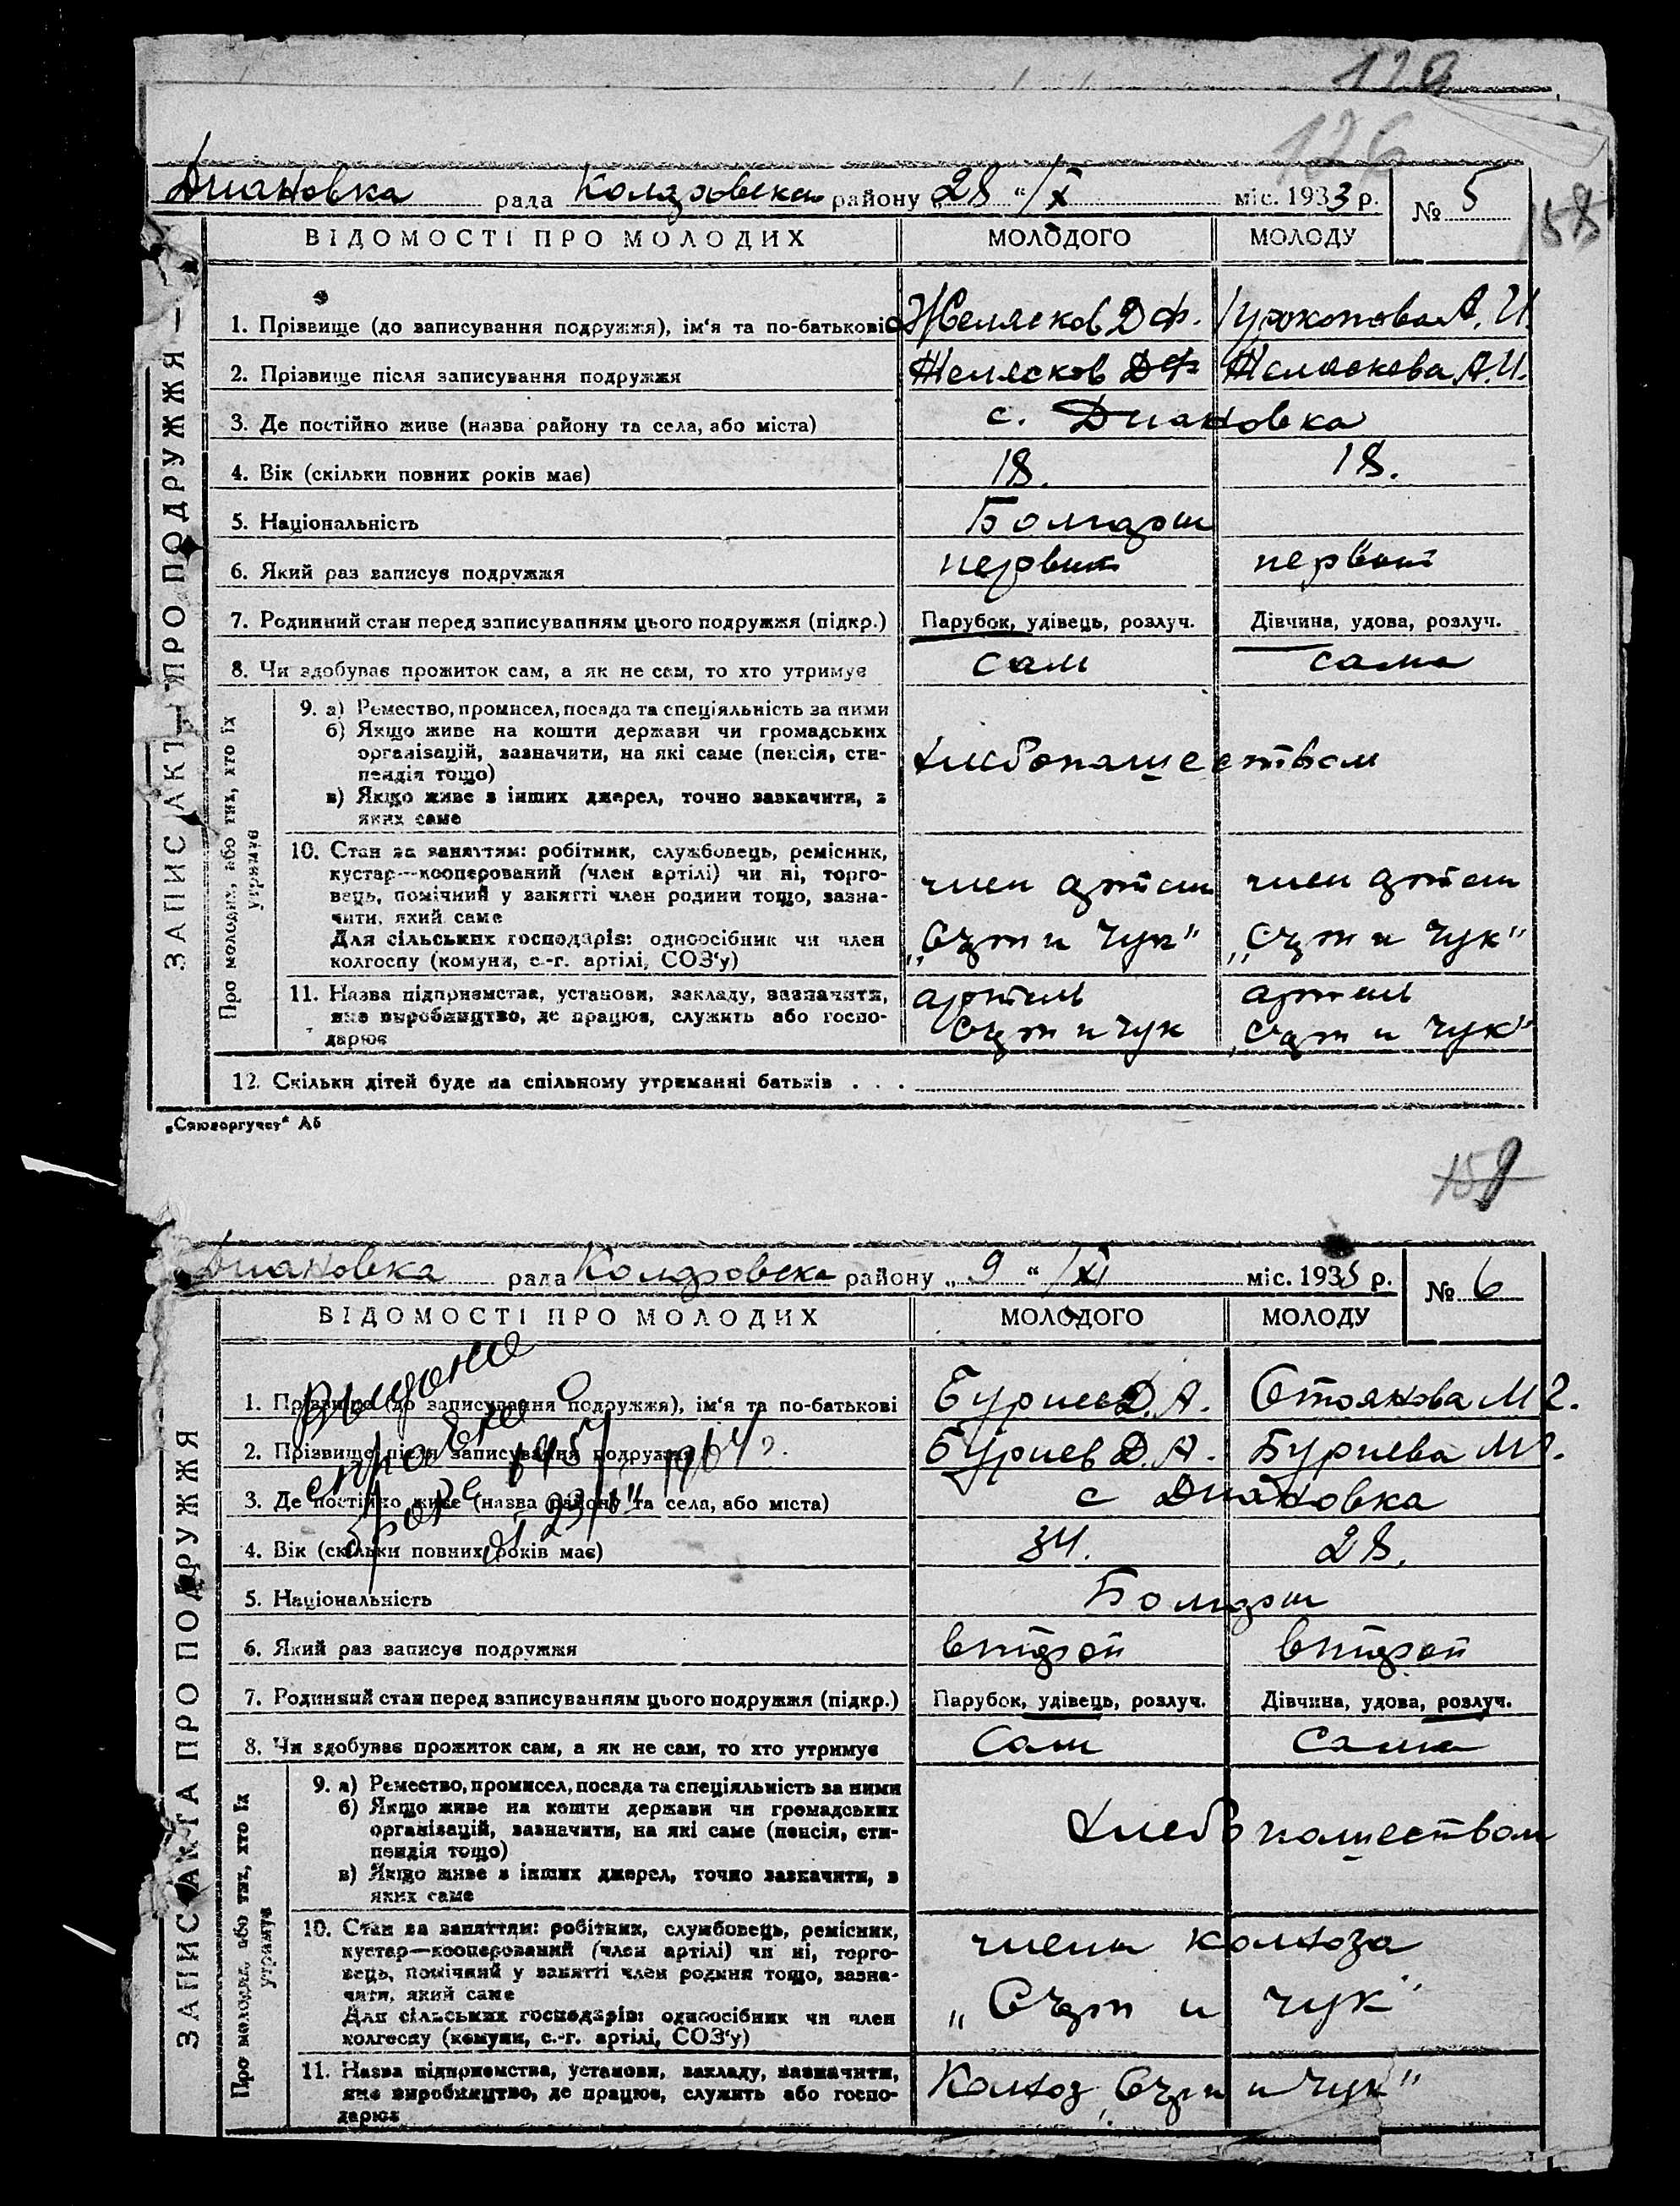 126
Диановка рада Коларовски району „28“ /X міс. 1933 р. № 5
158
ВІДОМОСТІ ПРО МОЛОДИХ МОЛОДОГО МОЛОДУ
ЗАПИС АКТА ПРО ПОДРУЖЖЯ
1. Прізвище (до записування подружжя), ім'я та по-батькові Желясков Д Ф. Прокопова А. И.
2. Прізвище після записування подружжя Желясков Д Ф Желяскова А. И.
3. Де постійно живе (назва району та села, або міста) с. Диановка
4. Вік (скільки повних років має) 18. 18.
5. Національність Болгары
6. Який раз записує подружжя первый первый
7. Родинний стан перед записуванням цього подружжя (підкр.) Парубок, удівець, розлуч. Дівчина, удова, розлуч.
8. Чи здобуває прожиток сам, а як не сам, то хто утримує сам сама
Про молодих, або тих, хто їх утримує
9. а) Ремество, промисел, посада та спеціяльність за ними
б) Якщо живе на кошти держави чи громадських
організацій, зазначити, на які саме (пенсія, сти-
пендія тощо)
хлебопашеством
в) Якщо живе з інших джерел, точно зазначити, з
яких саме
10. Стан за заняттям: робітник, службовець, ремісник,
кустар—кооперований (член артілі) чи ні, торго-
вець, помічний у занятті член родини тощо, зазна-
чити, який саме
Для сільських господарів: одноосібник чи член
колгоспу (комуни, с.-г. артілі, СОЗ'у)
член артели член артели
„Серп и Чук“ „Серп и Чук“
11. Назва підприємства, установи, закладу, зазначити,
яке виробництво, де працює, служить або госпо-
дарює
артель артель
Серп и Чук „Серп и Чук“
12. Скільки дітей буде на спільному утриманні батьків . . .
„Союзоргучет“ А6
159
Диановка рада Коларовски району „9“ /XI міс. 1933 р. № 6
ВІДОМОСТІ ПРО МОЛОДИХ МОЛОДОГО МОЛОДУ
ЗАПИС АКТА ПРО ПОДРУЖЖЯ
1. Прізвище (до записування подружжя), ім'я та по-батькові Буриев Д. А. Стоянова М Г.
2. Прізвище після записування подружжя Буриев Д. А. Буриева М Г.
3. Де постійно живе (назва району та села, або міста) с Диановка
4. Вік (скільки повних років має) 34. 28.
5. Національність Болгары
6. Який раз записує подружжя второй второй
7. Родинний стан перед записуванням цього подружжя (підкр.) Парубок, удівець, розлуч. Дівчина, удова, розлуч.
8. Чи здобуває прожиток сам, а як не сам, то хто утримує Сам Сама
Выдана
справка о
браке
Про молодих, або тих, хто їх утримує
9. а) Ремество, промисел, посада та спеціяльність за ними
б) Якщо живе на кошти держави чи громадських
організацій, зазначити, на які саме (пенсія, сти-
пендія тощо)
хлебопашеством
в) Якщо живе з інших джерел, точно зазначити, з
яких саме
10. Стан за заняттям: робітник, службовець, ремісник,
кустар—кооперований (член артілі) чи ні, торго-
вець, помічний у занятті член родини тощо, зазна-
чити, який саме
Для сільських господарів: одноосібник чи член
колгоспу (комуни, с.-г. артілі, СОЗ'у)
члены колхоза
„Серп и Чук“
11. Назва підприємства, установи, закладу, зазначити,
яке виробництво, де працює, служить або госпо-
дарює
Колхоз „Серп и Чук“